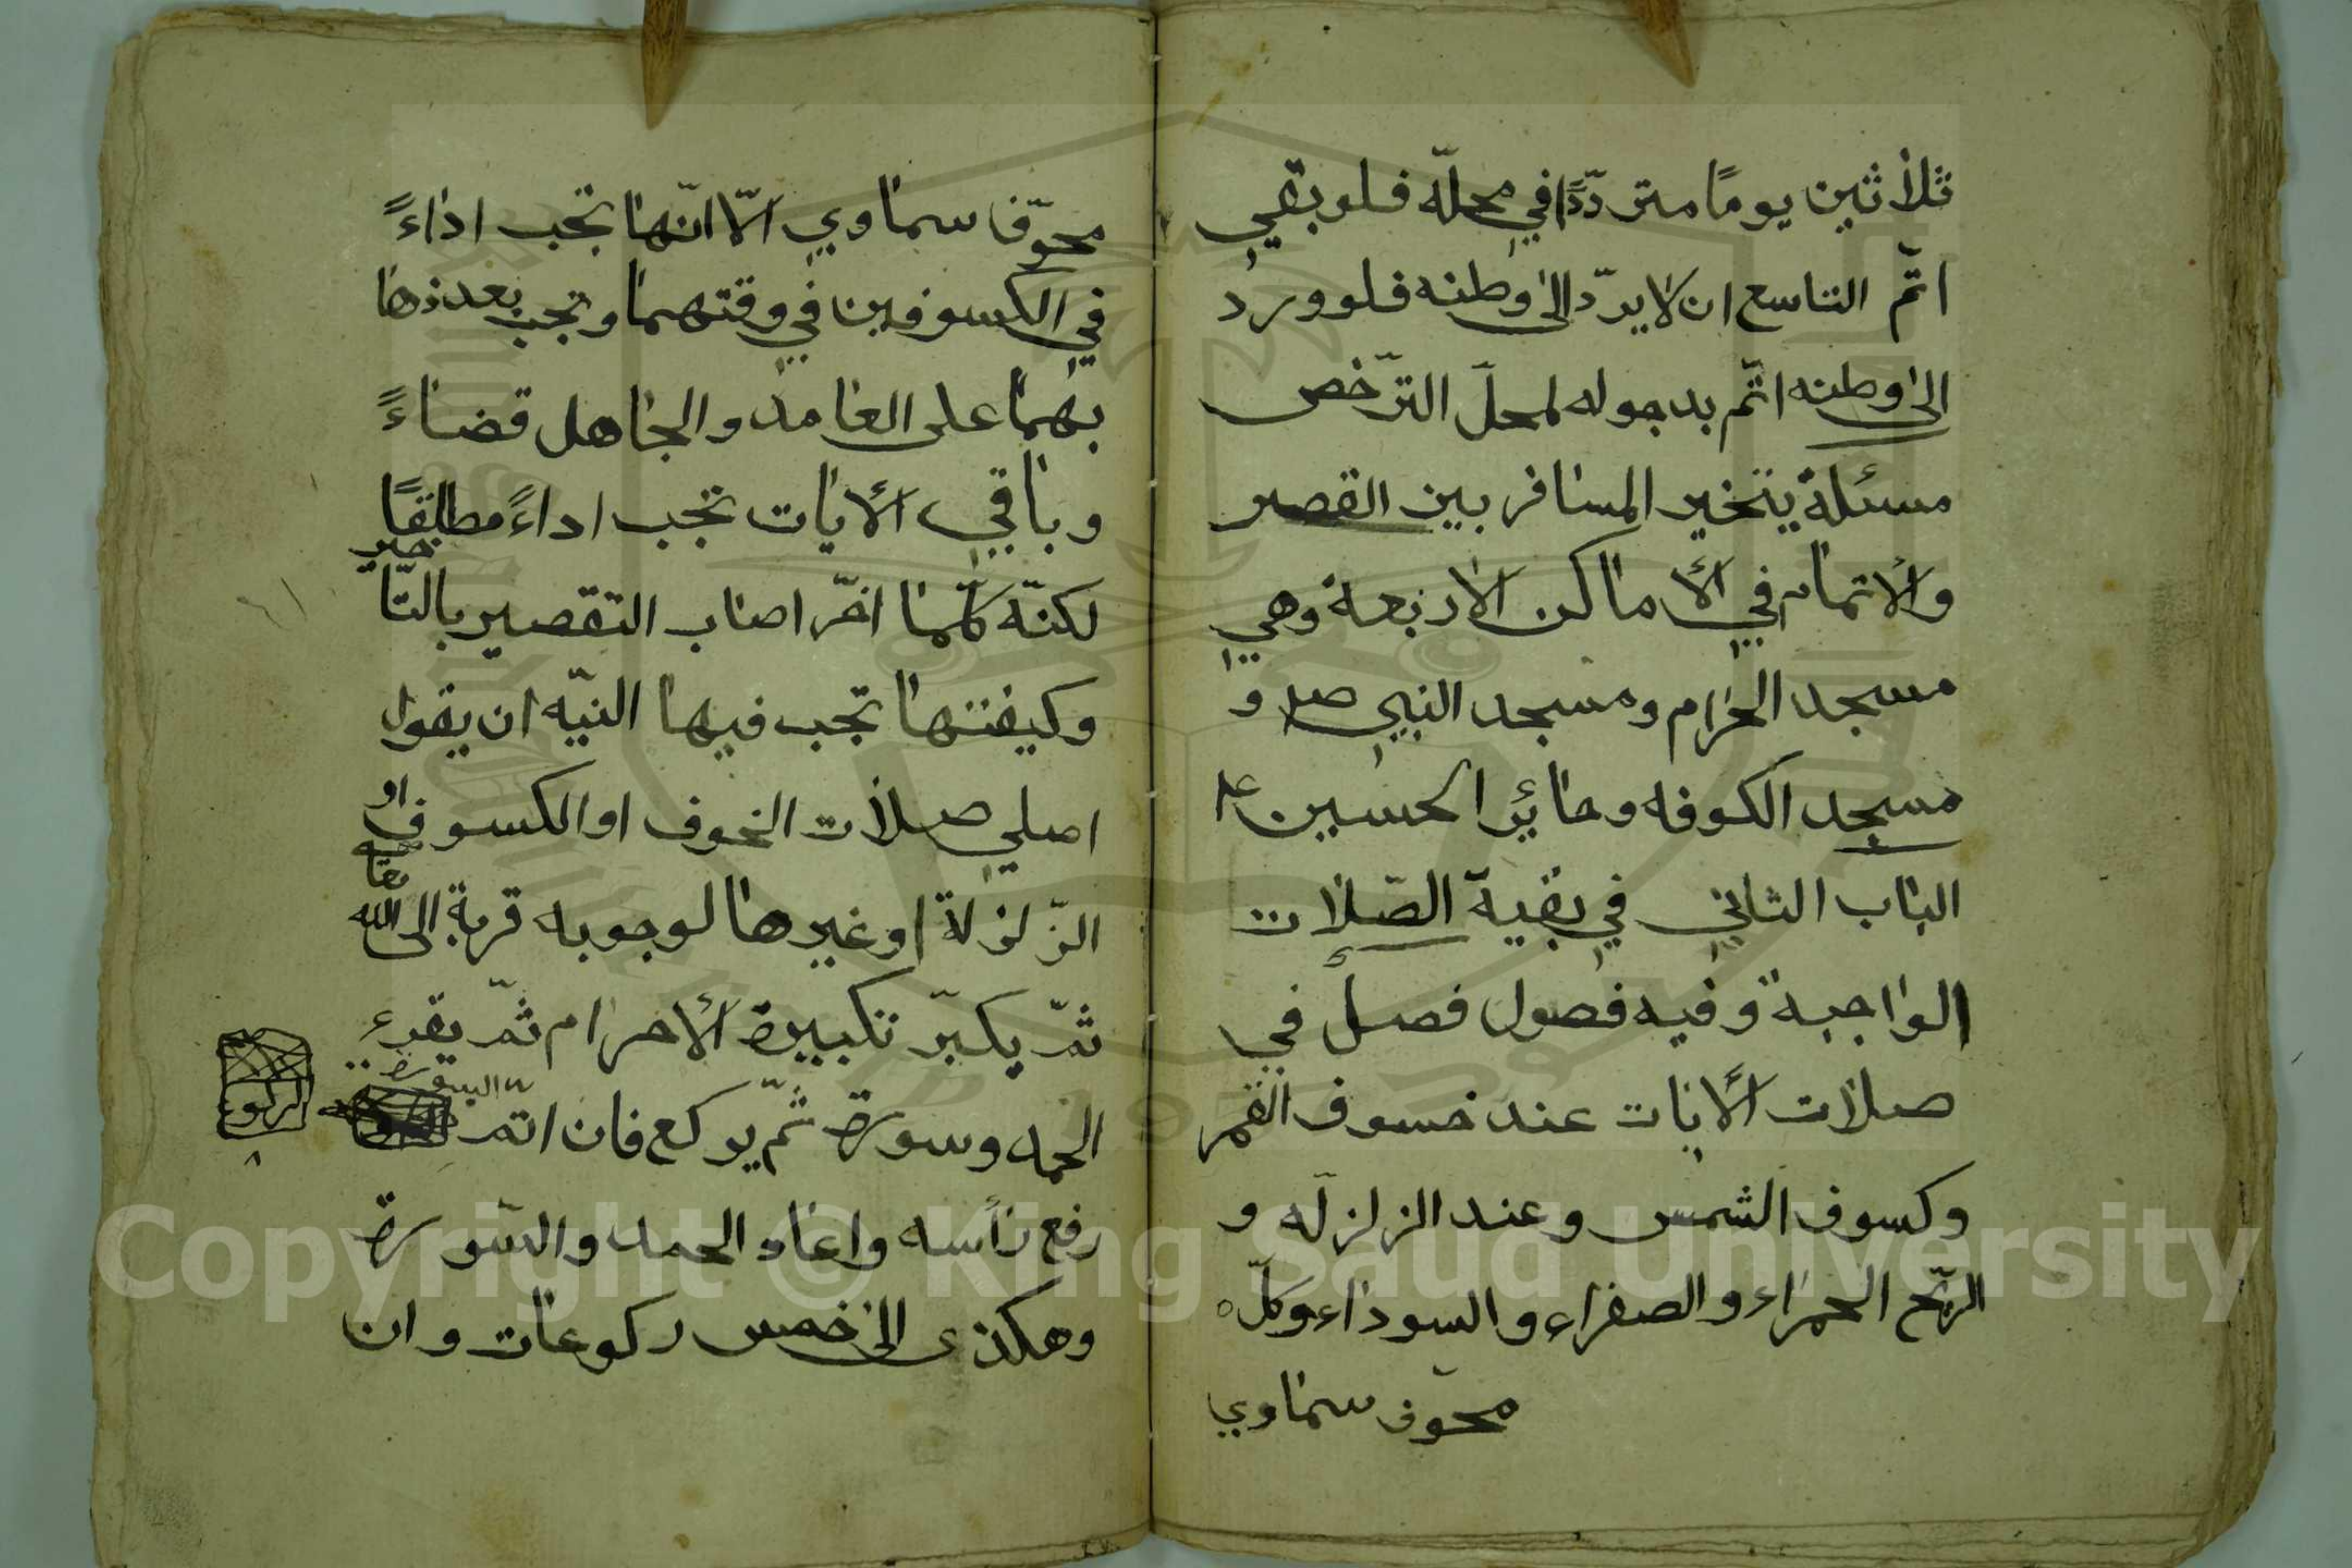 ثلاثين يومًا متردّدًا في محلّه فلو بقي
اتمّ التاسع ان لا يردّ الى وطنه فلو ورد
الى وطنه اتمّ بدخوله لمحلّ الترّخص
مسئلة يتخير المسافر بين القصر
والاتمام في الأماكن الاربعة وهي
مسجد الحرام ومسجد النبي صلم و
مسجد الكوفه وحائر الحسين ع
الباب الثاني في بقية الصّلات
الواجبة وفيه فصول فصل في
صلات الأيات عند خسوف القمر
وكسوف الشمس وعند الزلزله و
الرّيح الحمراء والصفراء والسوداء وكلّ
مخوّف سماوي
مخوّف سماوي الّا انّها تجب اداءً
في الكسوفين في وقتهما وتجب بعدها
بهما على العامد والجاهل قضاءً
وباقي الأيات تجب اداءً مطلقًا
لكنّه كلّما اخّر اصاب التقصير بالتّاخير
وكيفتها تجب فيها النيّه ان يقول
اصلي صلات الخوف او الكسوف او
الزّلزلة او غيرها لوجوبه قربة الى الله تعا
ثمّ يكبّر تكبيرة الأحرام ثمّ يقرء
الحمد وسورة ثمّ يركع فان اتمّ السورة
الركوع
رفع رأسه واعاد الحمد والسّورة
وهكذى الى خمس ركوعات وان
Copyright © King Saud University